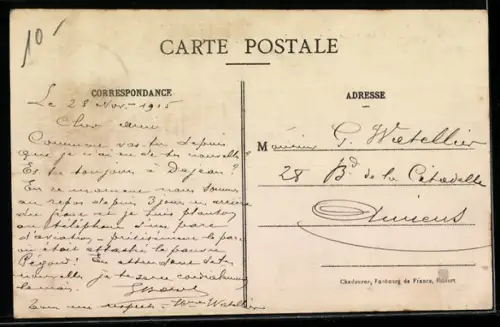 10f
CARTE POSTALE
CORRESPONDANCE
ADRESSE
Le 28 Nov. 1915
Cher ami
Comment vas-tu depuis
que je n'ai eu de tes nouvelles?
Es tu toujours à
En ce moment nous sommes
au repos depuis 3 jours en arrière
du front et je suis planton
au téléphone d'un parc
d'aviation - précisément le parc
où était attaché le pauvre
Pégoud! En attendant tes
nouvelles je te serre cordialement
la main.
Tous mes respects à Mme Watellier
Monsieur G. Watellier
28 Bd de la Citadelle
Amiens
Faubourg de France,